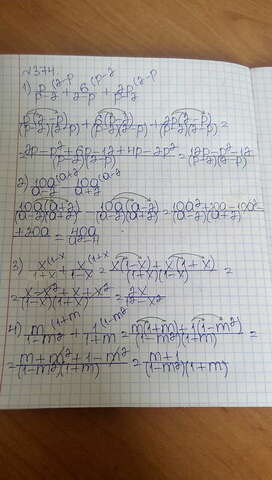 №374
1) p/(p-2)^(2-p) + 6/(2-p)^(p-2) + 2p/(p-2)^(2-p)
p(2-p)/((p-2)(2-p)) + 6(p-2)/((p-2)(2-p)) + 2p(2-p)/((p-2)(2-p)) =
= (2p-p²+6p-12+4p-2p²)/((p-2)(2-p)) = (12p-p²-12)/((p-2)(2-p))
2) 10a/(a-2)^(a+2) - 10a/(a+2)^(a-2)
10a(a+2)/((a-2)(a+2)) - 10a(a-2)/((a-2)(a+2)) = (10a²+20a-10a²
+20a)/ = 40a/(a²-4)
3) x/(1+x)^(1-x) + x/(1-x)^(1+x) = (x(1-x)+x(1+x))/((1-x)(1+x)) =
= (x-x²+x+x²)/((1-x)(1+x)) = 2x/(1-x²)
4) m/(1-m²)^(1+m) + 1/(1+m)^(1-m²) = (m(1+m)+1(1-m²))/((1-m²)(1+m)) =
= (m+m²+1-m²)/((1-m²)(1+m)) = (m+1)/((1-m²)(1+m))